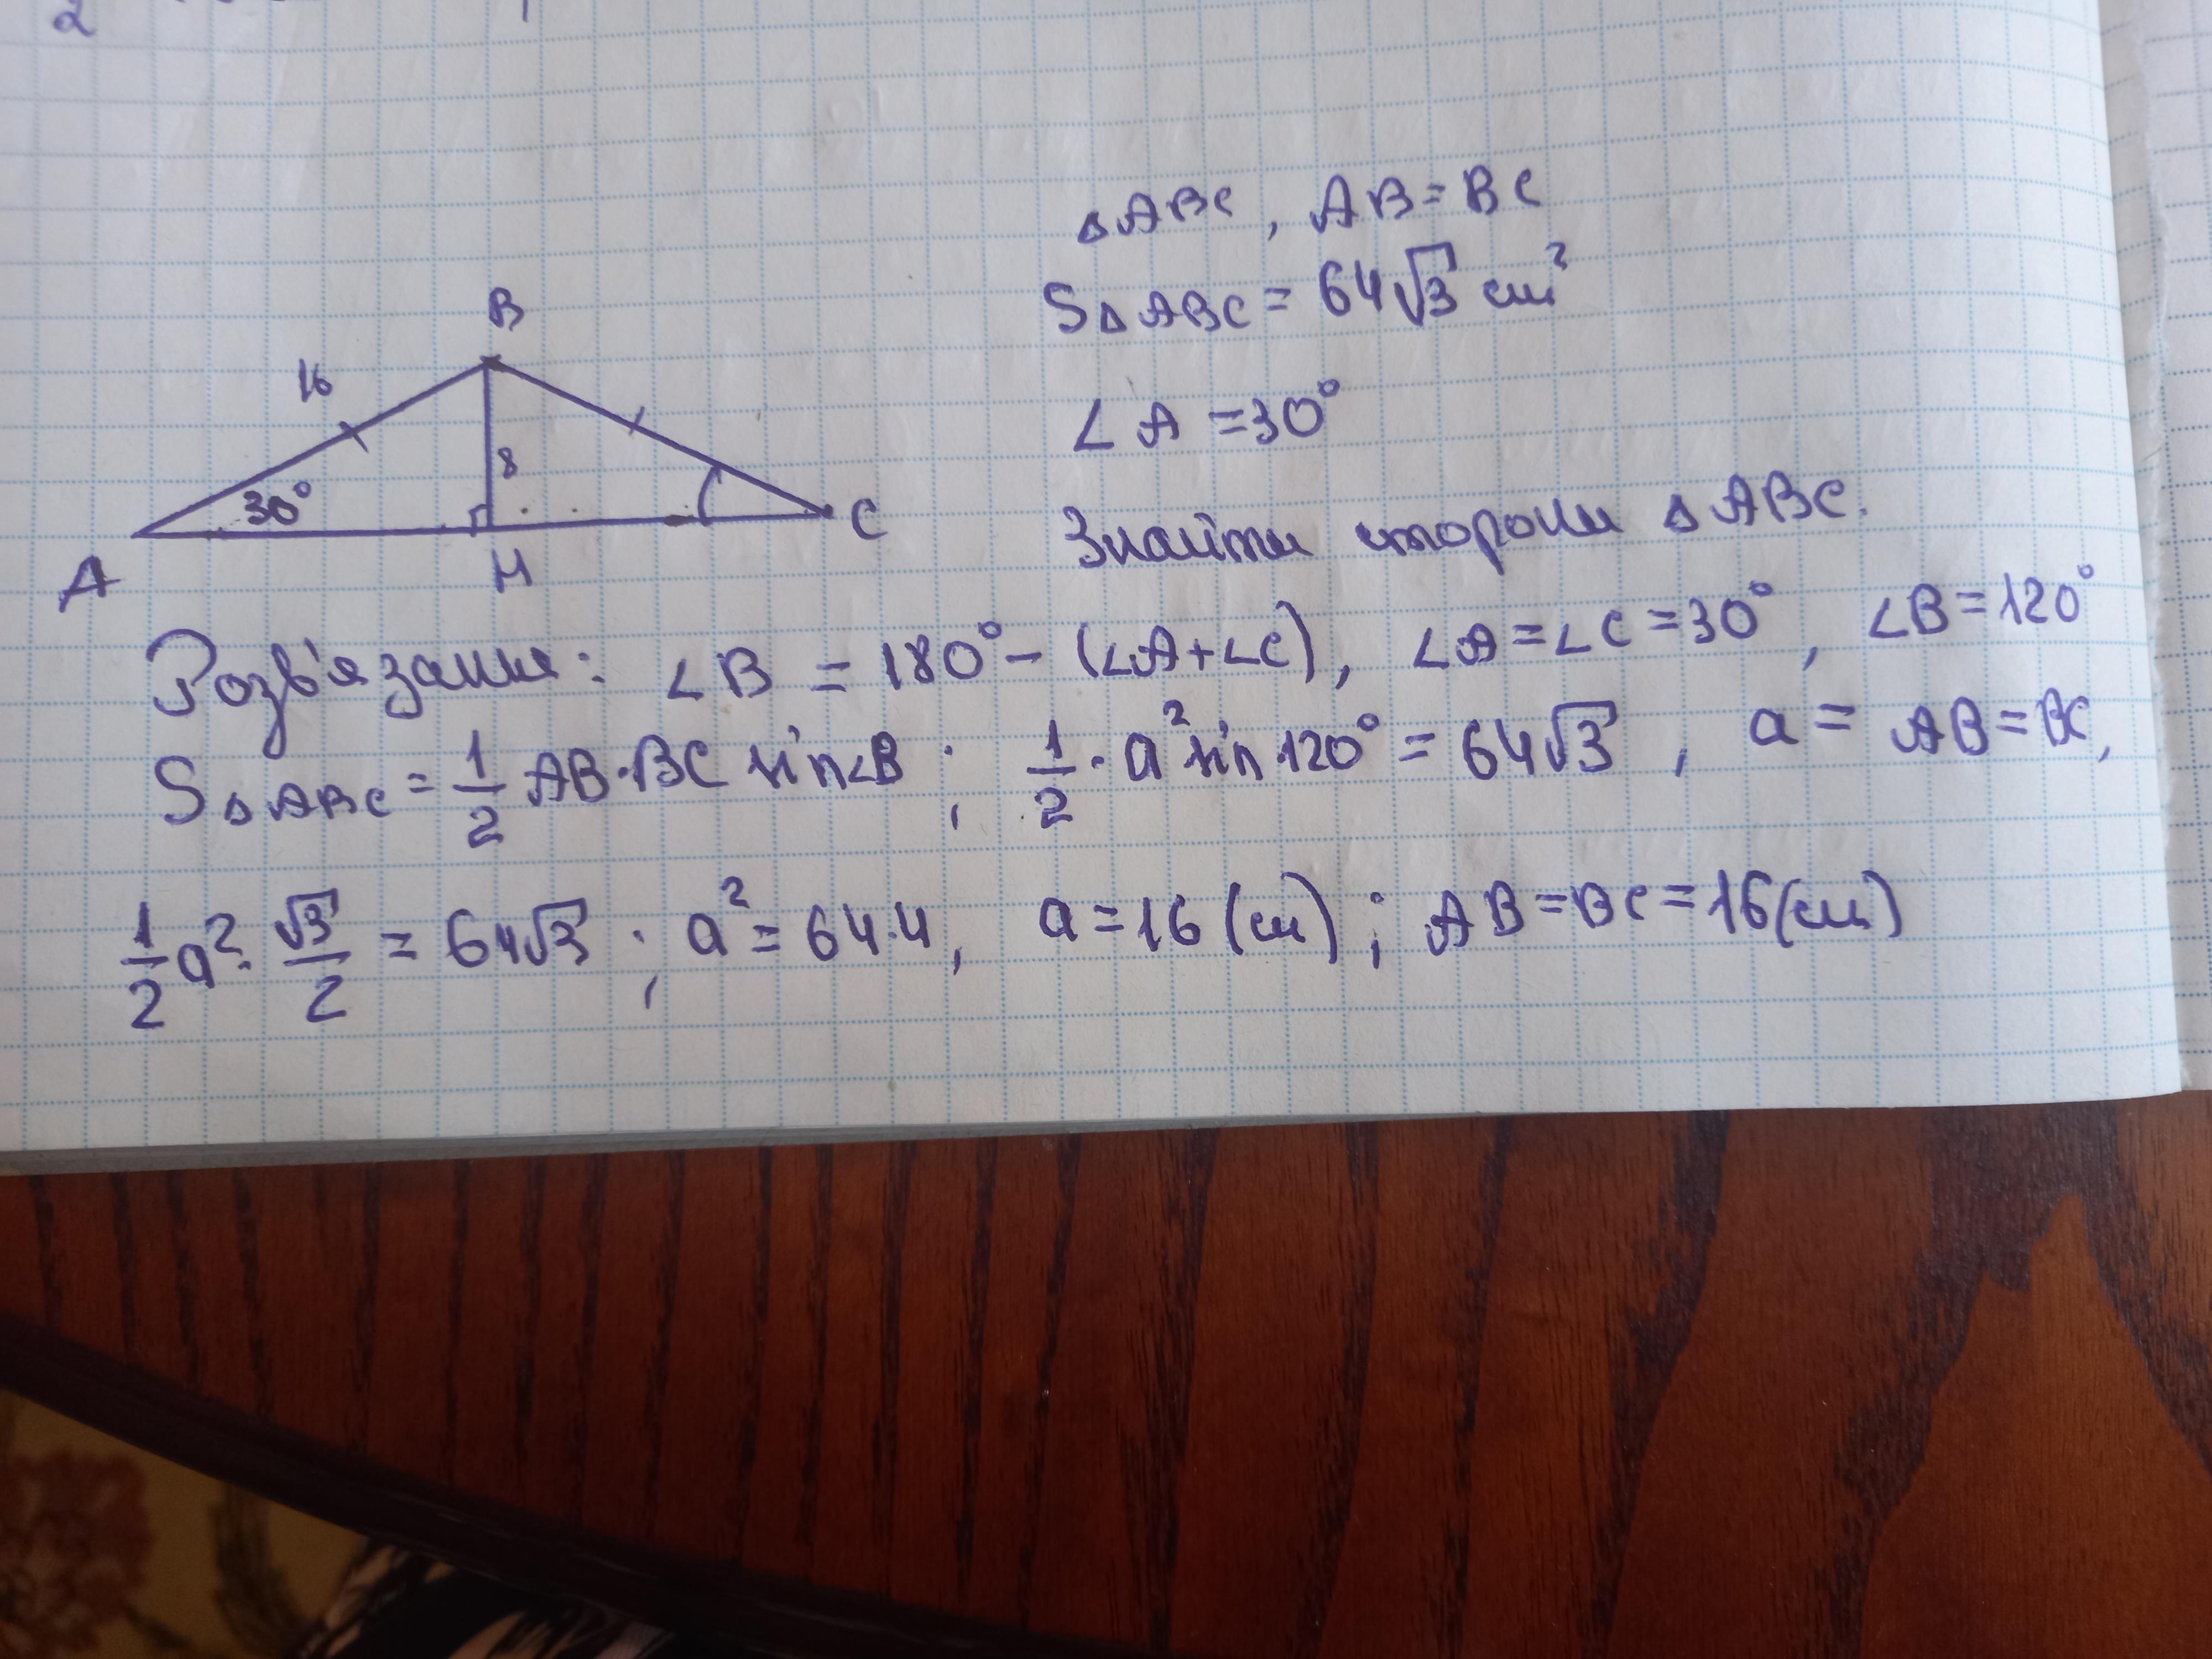 2
△ABC, AB = BC
S△ABC = 64√3 см²
∠A = 30°
Знайти сторони △ABC.
B
16
8
30°
A
H
C
Розв'язання: ∠B = 180° - (∠A + ∠C), ∠A = ∠C = 30°, ∠B = 120°
S△ABC = 1/2 AB · BC sin∠B ; 1/2 · a² sin 120° = 64√3 , a = AB = BC,
1/2 a² · √3/2 = 64√3 ; a² = 64·4, a = 16 (см) ; AB = BC = 16 (см)